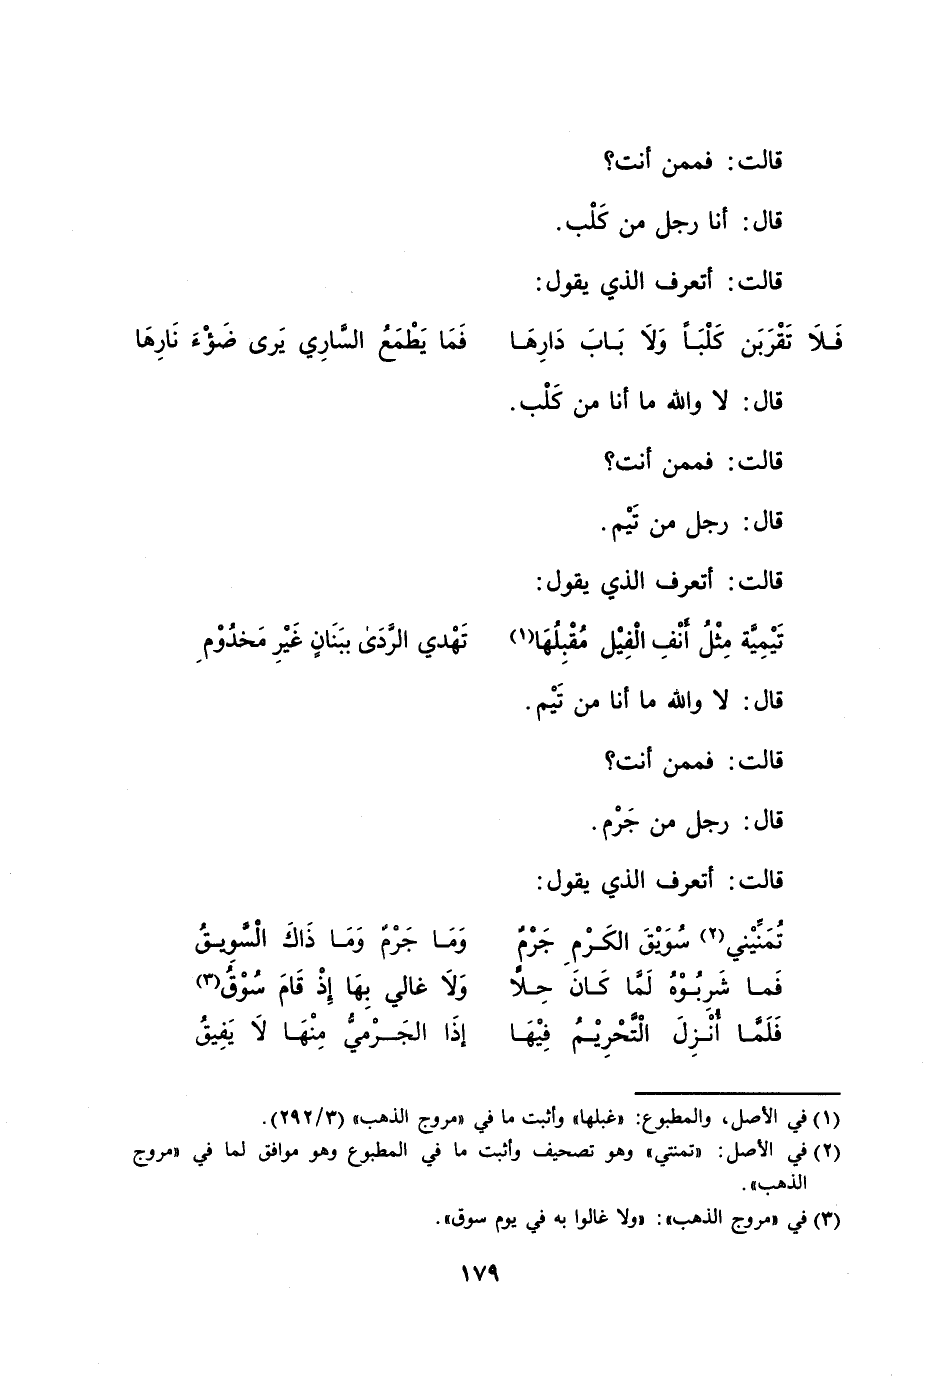 قالت: فممن أنت؟
قال: أنا رجل من كَلْب.
قالت: أتعرف الذي يقول:
فَـلَا تَقْرَبَن كَلْبَـاً وَلَا بَـابَ دَارِهَـا فَمَا يَطْمَعُ السَّارِي يَرى ضَوْءَ نَارِهَا
قال: لا والله ما أنا من كَلْب.
قالت: فممن أنت؟
قال: رجل من تَيْم.
قالت: أتعرف الذي يقول:
تَيْمِيَّة مِثْلُ أَنْفِ الْفِيْل مُقْبِلُهَا(١) تَهْدي الرَّدَىٰ بِبَنَانٍ غَيْرِ مَخدُوْمِ
قال: لا والله ما أنا من تَيْم.
قالت: فممن أنت؟
قال: رجل من جَرْم.
قالت: أتعرف الذي يقول:
تُمَنِّيْني(٢) سُوَيْقَ الكَـرْمِ جَرْمٌ وَمَـا جَرْمٌ وَمَـا ذَاكَ الْسَّوِيـقُ
فَمـا شَرِبُوْهُ لَمَّا كَـانَ حِـلاًّ وَلَا غالي بِهَا إِذْ قَامَ سُوْقُ(٣)
فَلَمَّـا أُنْـزِلَ الْتَّحْرِيْـمُ فِيْهَـا إذَا الجَـرْميُّ مِنْهَـا لَا يَفِيقُ
(١) في الأصل، والمطبوع: «غبلها» وأثبت ما في «مروج الذهب» (٢٩٢/٣).
(٢) في الأصل: «تمنتي» وهو تصحيف وأثبت ما في المطبوع وهو موافق لما في «مروج
الذهب».
(٣) في «مروج الذهب»: «ولا غالوا به في يوم سوق».
١٧٩